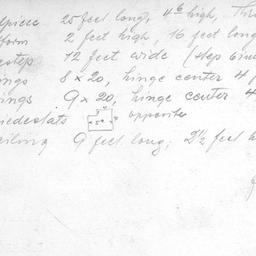 piece 25 feet long, 4 6 high, Thr
form 2 feet high, 16 feet long
estep 12 feet wide (step 6 in
ngs 8 x 20, hinge center 4
ings 9 x 20, hinge center 4
piedestals opposites
ceiling 9 feet long, 2½ feet